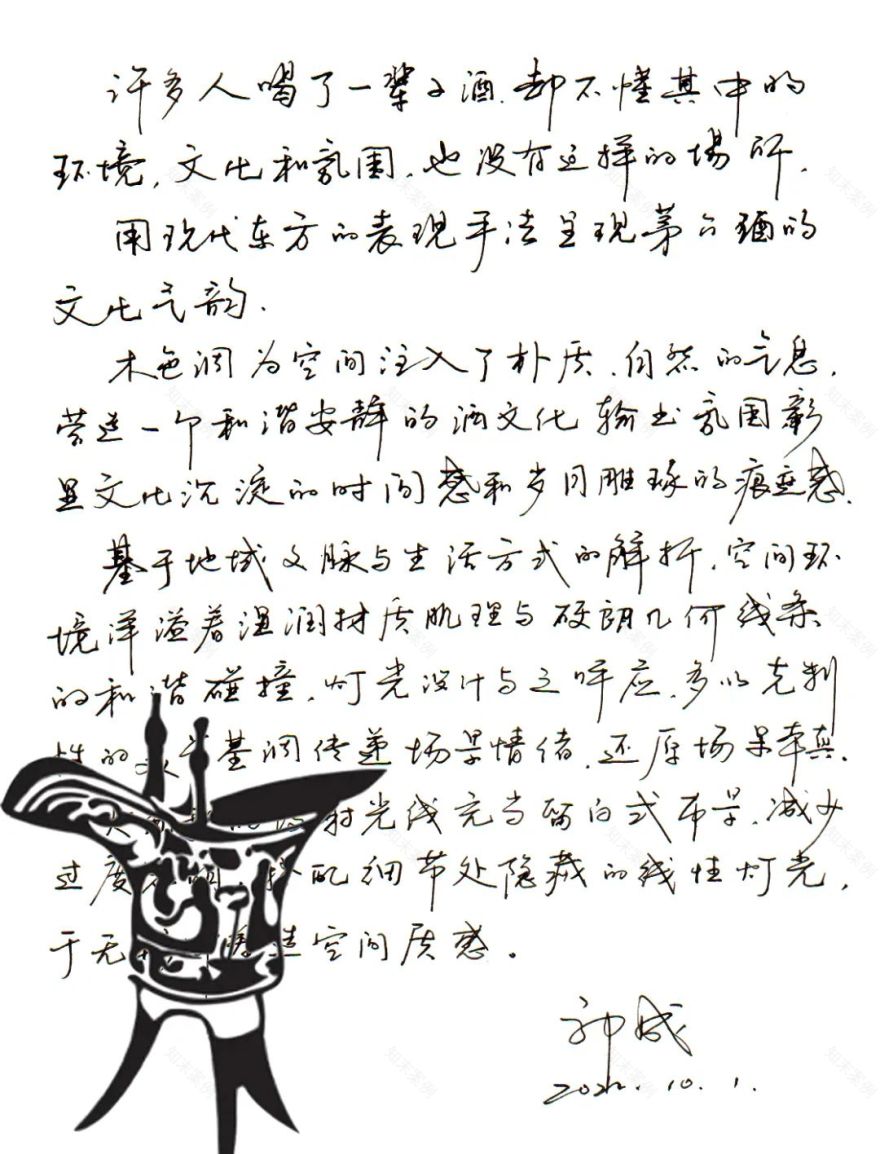 许多人喝了一辈子酒.却不懂其中的
环境,文化和氛围,也没有这样的場所,
用现代东方的表现手法呈现茅台酒的
文化气韵.
木色调为空间注入了朴质.自然的气息,
营造一个和谐安静的酒文化输出氛围彰
显文化沉淀的时间感和岁月雕琢的痕迹感.
基于地域文脉与生活方式的解析,空间环
境洋溢着温润材质肌理与硬朗几何线条
的和谐碰撞,灯光设计与之呼应,多以克制
性的 基调传递场景情绪,还原场景本真.
射光线充当留白式布景,减少
过度 配细节处隐藏的线性灯光,
于无 造空间质感。
2022.10.1.
知末案例